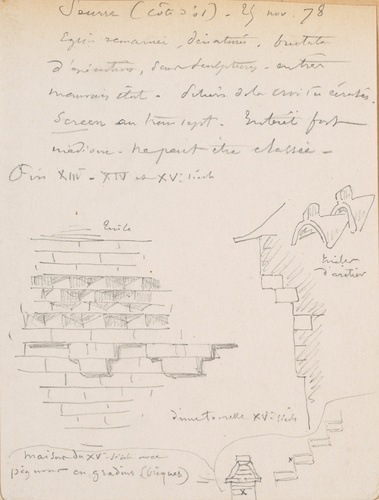 Seurre (Côte d'or) - 25 nov. 78
Eglise remaniée, dénaturée, brutale
d'exécution, sans sculptures - en très
mauvais état - Piliers de la croisée écrasés.
Screen au transept. Intérêt fort
médiocre. Ne peut être classée -
Fin XIII - XIV et XVe siècle
tuiles
d'arêtier
d'une tourelle XVe siècle
maison du XVe siècle avec
pignons en gradins (briques)
x
x